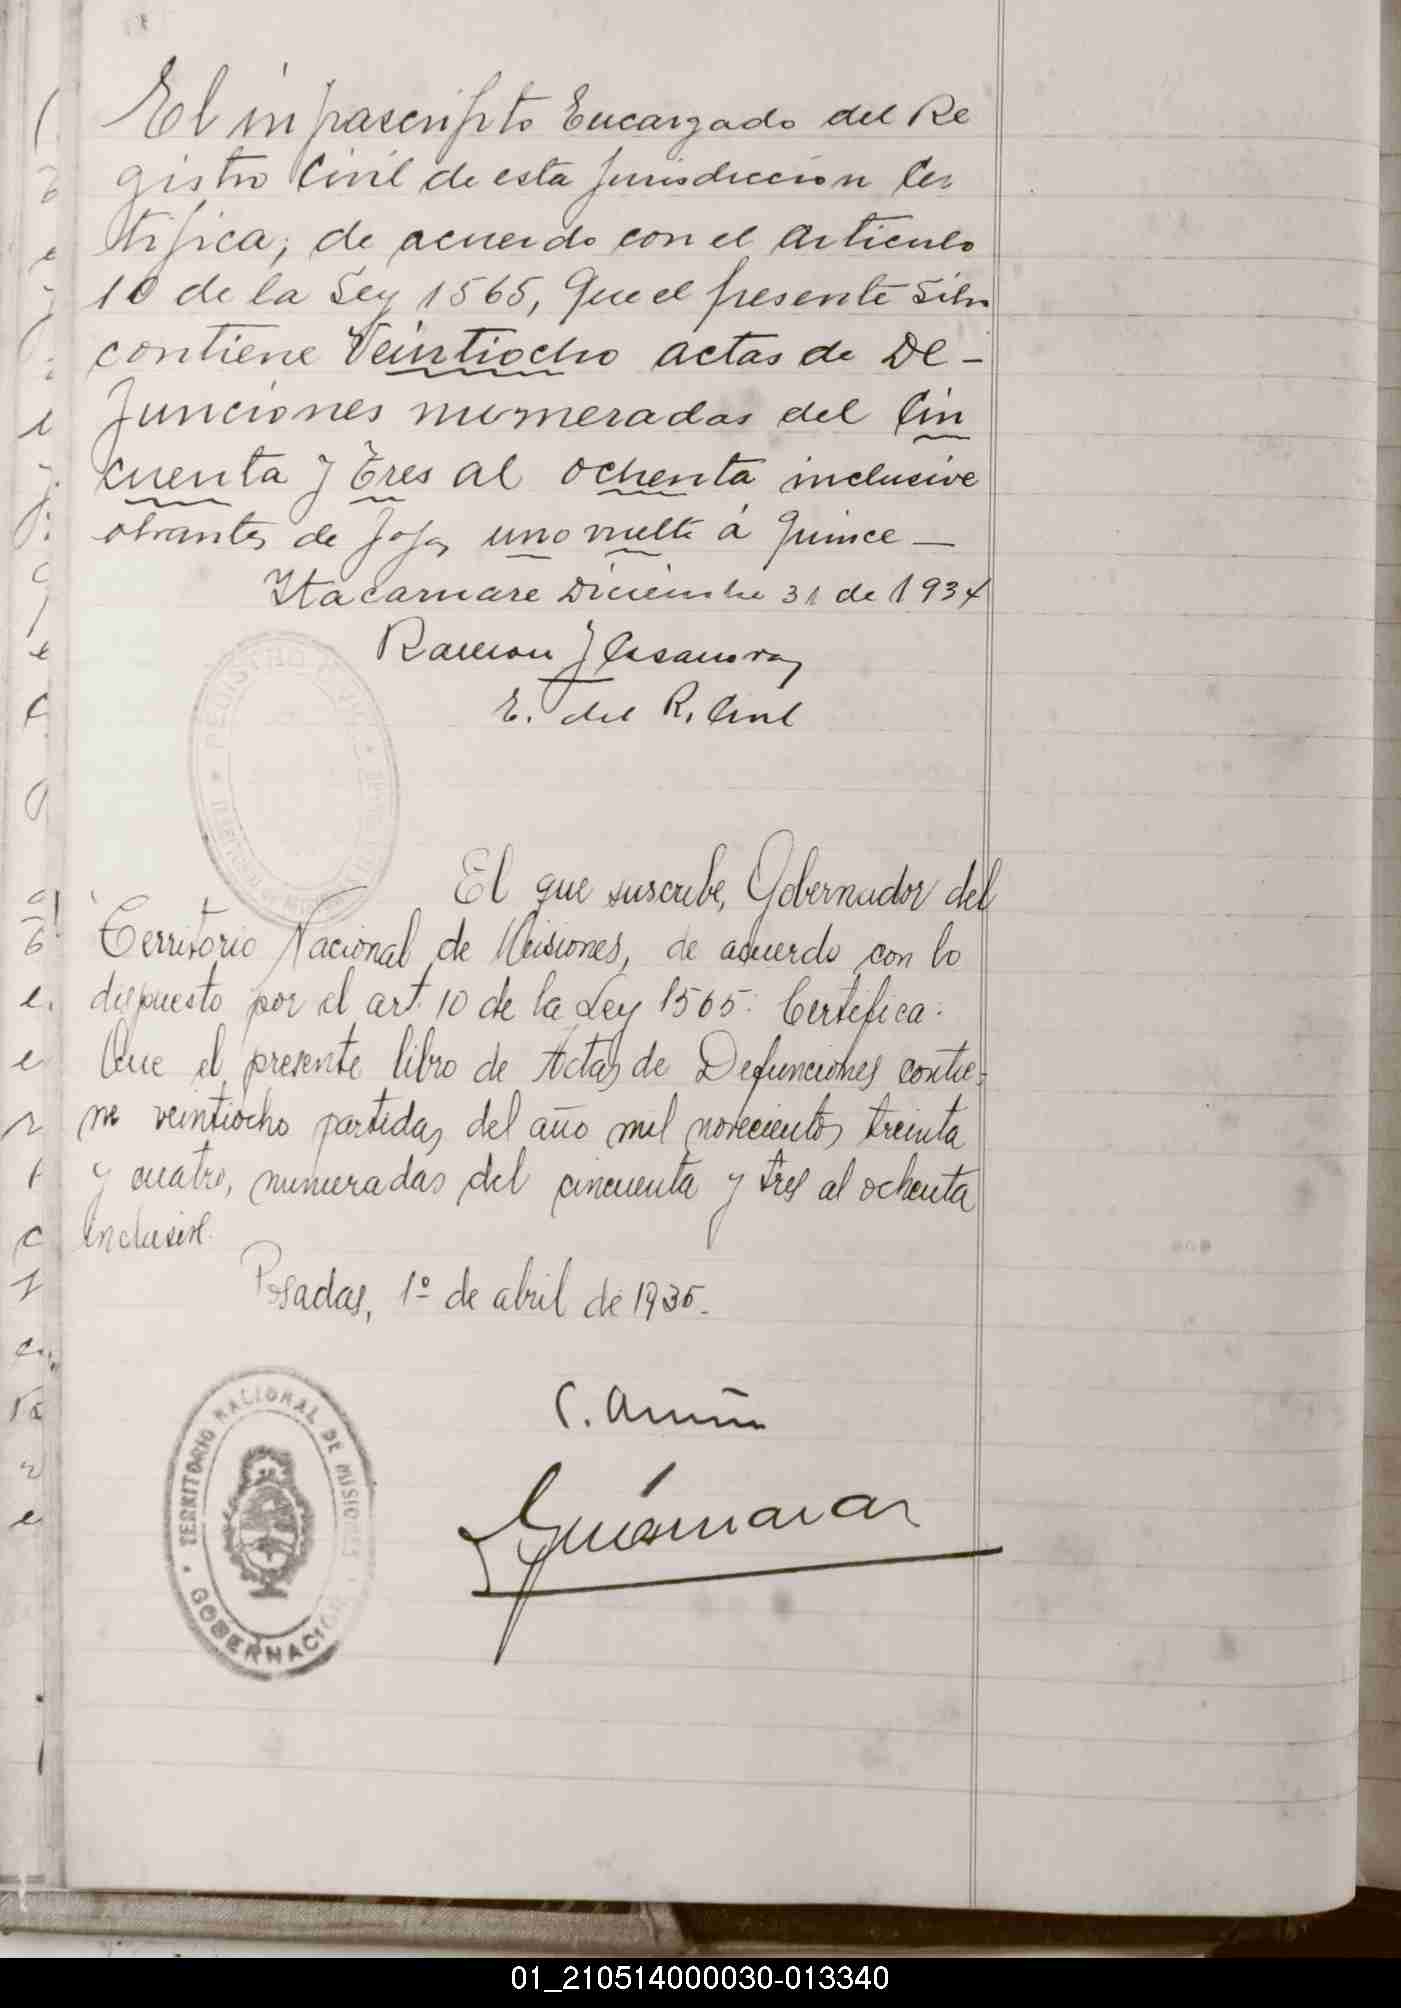 El infrascripto Encargado del Re
gistro Civil de esta Jurisdiccion Cer
tifica, de acuerdo con el Articulo
10 de la Ley 1565, Que el presente Libro
contiene Veintiocho actas de De-
funciones numeradas del Cin
cuenta y Tres al ochenta inclusive
obrantes de fojas uno vuelta á quince —
Itacaruare Diciembre 31 de 1934
Ramon J Casanova
E. del R. Civil
REGISTRO CIVIL
El que suscribe, Gobernador del
Territorio Nacional de Misiones, de acuerdo con lo
dispuesto por el art. 10 de la Ley 1565: Certifica:
Que el presente libro de Actas de Defunciones contie-
ne veintiocho partidas del año mil novecientos treinta
y cuatro, numeradas del cincuenta y tres al ochenta
inclusive.
Posadas, 1º de abril de 1935.
C. Acuña
TERRITORIO NACIONAL DE MISIONES
GOBERNACION
01_210514000030-013340